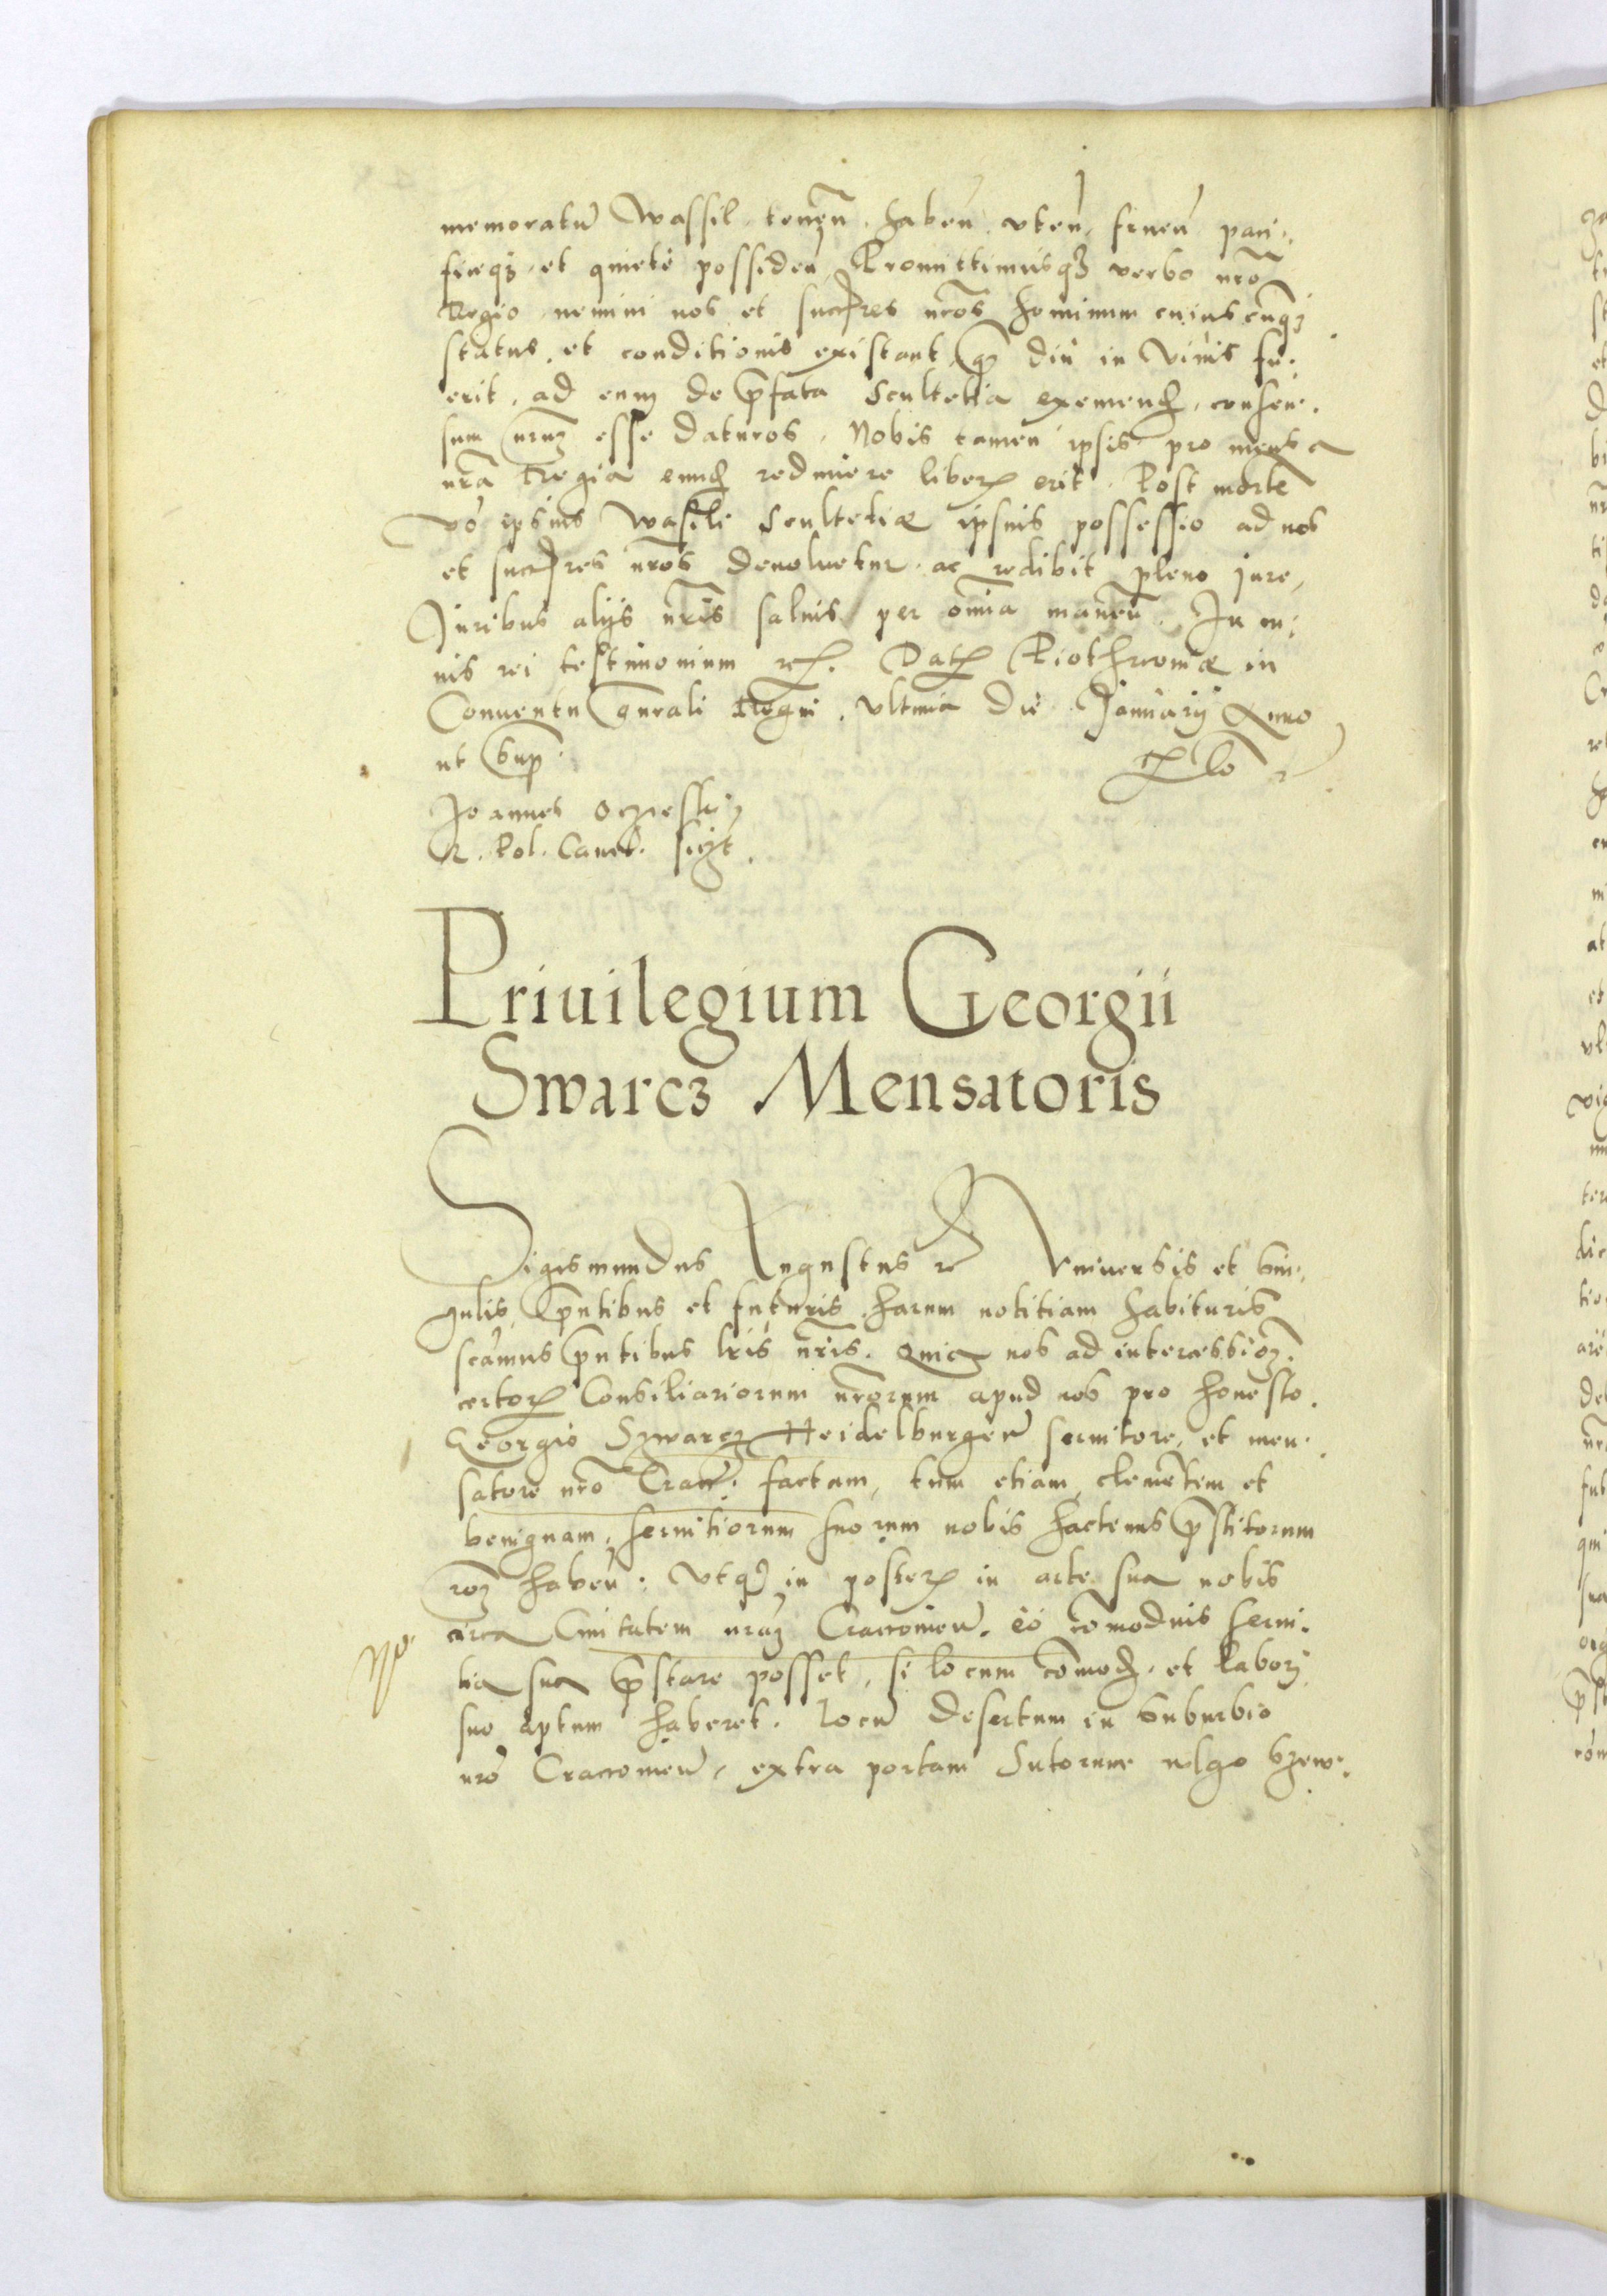 memoratū Wassil tenen̄. haben̄. vten̄. fruen̄ paci:
ficeqȝ et quiete possiden̄ Promittimusqȝ verbo nr̄o
Regio nemini nos et succr̄es nr̄os hominum cuiuscunqȝ
status, et conditionis existant, qͫ diu in viuis fu:
erit, ad eum de p̄fata Scultetia exemend̄, consen:
sum nr̄um esse daturos. Nobis tamen ipsis pro mensa
nr̄a Regia eund̄ redimere liberū erit. Post mortē
vo ipsius Wasili Scultetiæ ipsius possessio ad nos
et succr̄es nr̄os deuoluetur ac redibit pleno jure,
Juribus alijs nr̄is saluis per om̄ia manen̄. In cu:
ius rei testimonium etc. Dat. Piothrcouiæ in
Conuentu gn̄rali Regni. vltima die Januarij Anno
ut sup̄.
Joannes Oczesky
R. Pol. Canc. sſzt.
Priuilegium Georgii
Swarcz Mensatoris
Sigismundus Augustus etc Vniuersis et sin:
gulis, p̄ntibus et futuris harum notitiam habituris
sc̄imus p̄ntibus lr̄is nr̄is. Quia nos ad intercessioȝ
certorū Consiliariorum nr̄orum apud nos pro honesto
Georgio Szwarcz Heidelburgen̄ seruitore, et men:
satore nr̄o Crac̄. factam, tum etiam clementem et
benignam, seruitiorum suorum nobis hactenus p̄stitorum
ro͞ȝ haben̄. Vtqȝ in posterū in arte sua nobis
circa Ciuitatem nr̄aȝ Cracouien̄. eo com̄odius serui:
No
tia sua p̄stare posset, si locum com̄od̄. et labori
suo aptum haberet. locū desertum in Suburbio
nr̄o Cracouien̄, extra portam Sutorum vulgo Szew: